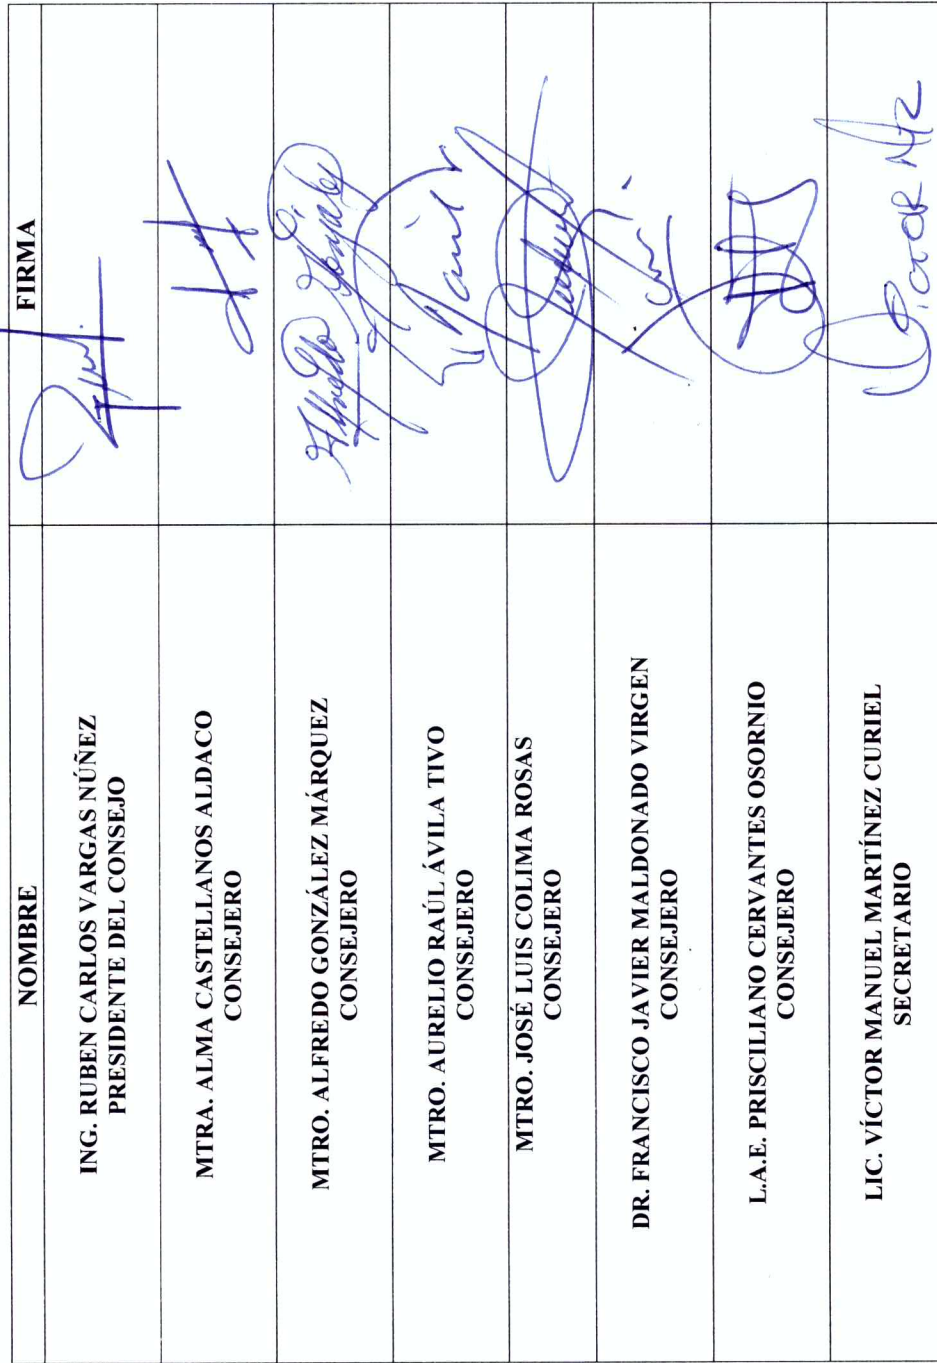 NOMBRE
FIRMA
ING. RUBEN CARLOS VARGAS NÚÑEZ
PRESIDENTE DEL CONSEJO
MTRA. ALMA CASTELLANOS ALDACO
CONSEJERO
MTRO. ALFREDO GONZÁLEZ MÁRQUEZ
CONSEJERO
Alfredo González
MTRO. AURELIO RAÚL ÁVILA TIVO
CONSEJERO
MTRO. JOSÉ LUIS COLIMA ROSAS
CONSEJERO
DR. FRANCISCO JAVIER MALDONADO VIRGEN
CONSEJERO
L.A.E. PRISCILIANO CERVANTES OSORNIO
CONSEJERO
LIC. VÍCTOR MANUEL MARTÍNEZ CURIEL
SECRETARIO